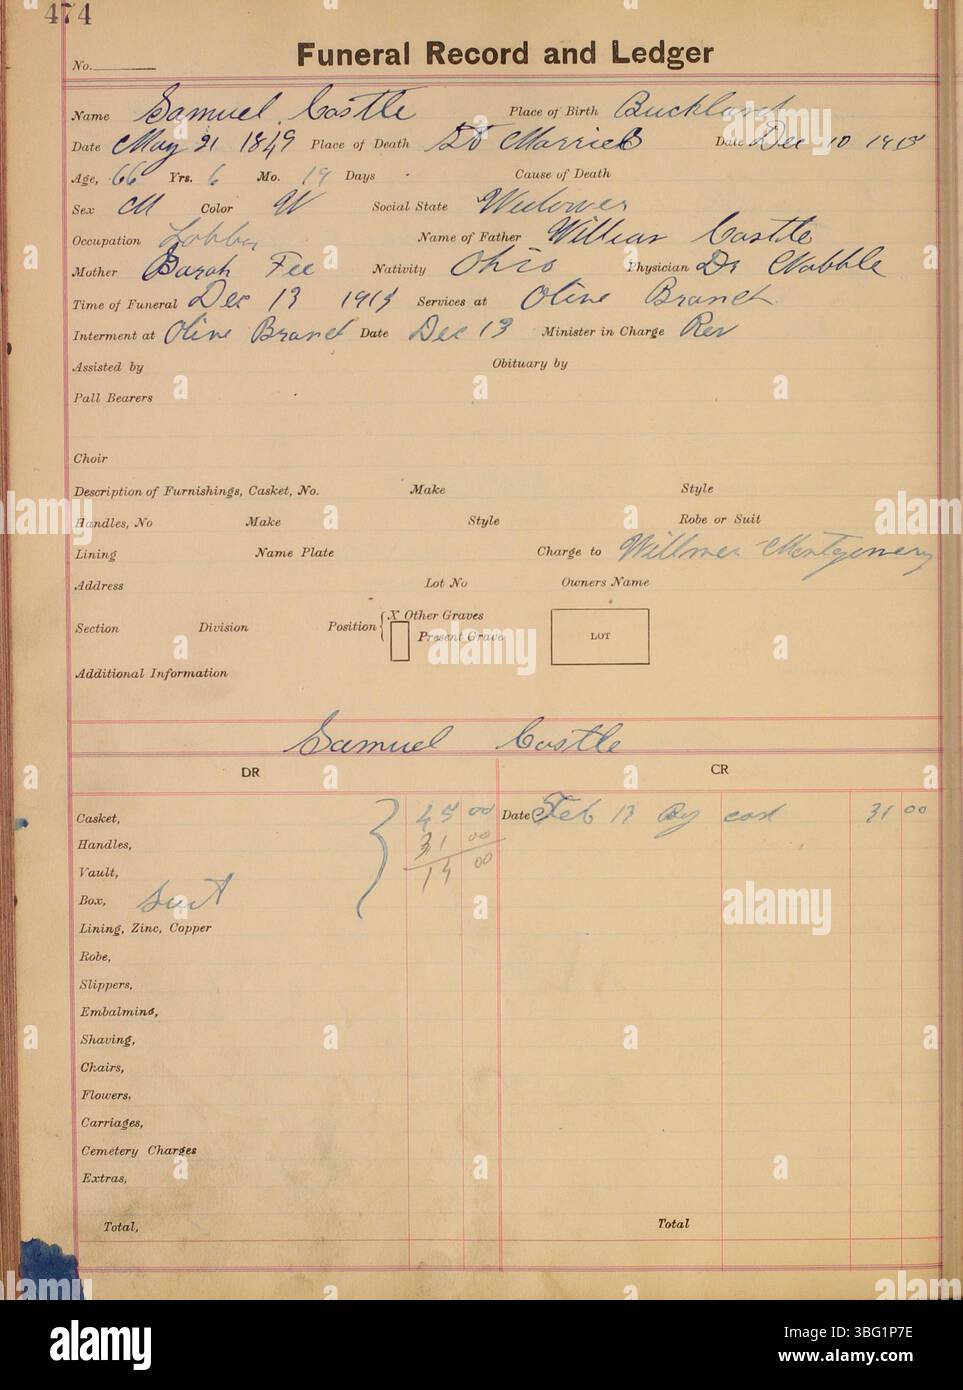 474
Funeral Record and Ledger
No.
Name Samuel Castle Place of Birth Buckland
Date May 21 1849 Place of Death St Marries Date Dec 10 1915
Age, 66 Yrs. 6 Mo. 19 Days Cause of Death
Sex M Color W Social State Widower
Occupation Name of Father William Castle
Mother Sarah Fee Nativity Ohio Physician Dr Nobble
Time of Funeral Dec 13 Services at Olive Branch
Interment at Olive Branch Date Dec 13 Minister in Charge Rev
Assisted by Obituary by
Pall Bearers
Choir
Description of Furnishings, Casket, No. Make Style
Handles, No Make Style Robe or Suit
Lining Name Plate Charge to Willmer Montgomery
Address Lot No Owners Name
Section Division Position { X Other Graves
Present Grave
LOT
Additional Information
Samuel Castle
DR CR
Casket, 45 00 Date Feb 13 By cash 31 00
Handles, 31 00
Vault, 14 00
Box, Suit
Lining, Zinc, Copper
Robe,
Slippers,
Embalming,
Shaving,
Chairs,
Flowers,
Carriages,
Cemetery Charges
Extras,
Total, Total
alamy
Image ID: 3BG1P7E
www.alamy.com